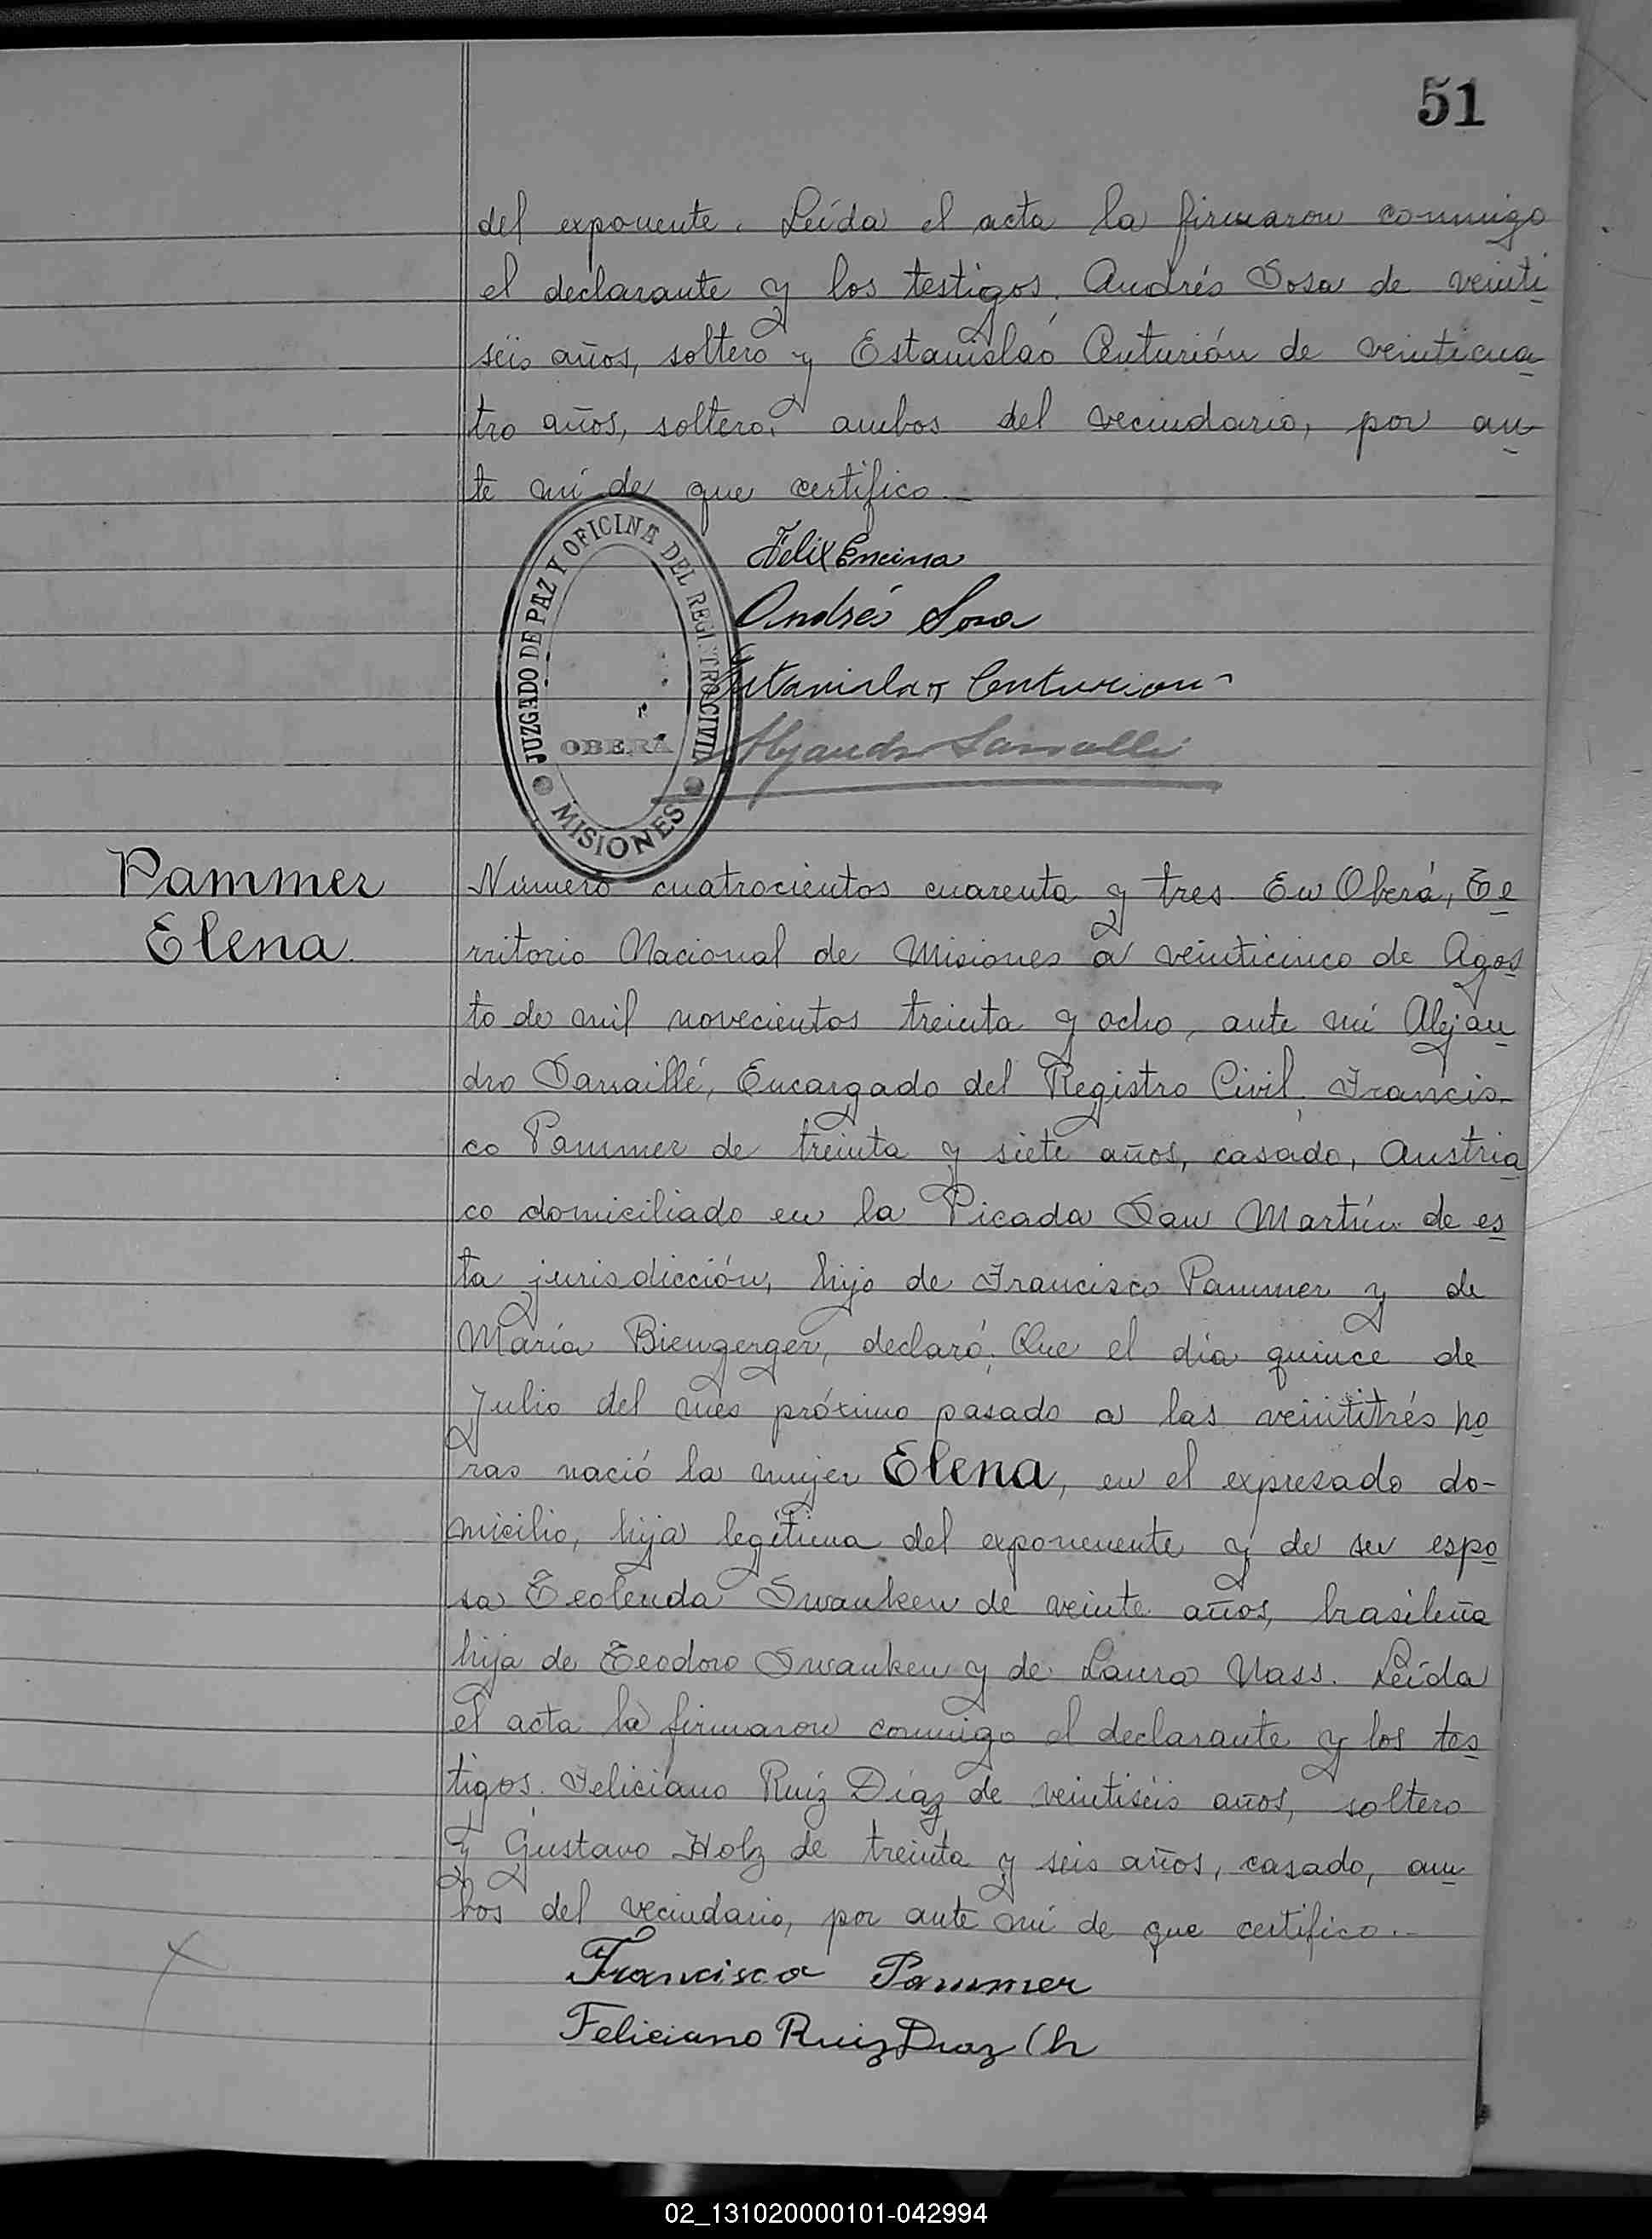 51
del exponente. Leída el acta la firmaron conmigo
el declarante y los testigos. Andrés Sosa de veinti
séis años, soltero y Estanislao Centurión de veinticua
tro años, soltero, ambos del vecindario, por an
te mí de que certifico.—
Felix Encina
Andrés Sosa
Estanislao Centurion
JUZGADO DE PAZ Y OFICINA DEL REGISTRO CIVIL
OBERÁ
MISIONES
Pammer
Elena.
Número cuatrocientos cuarenta y tres. En Oberá, Te
rritorio Nacional de Misiones a veinticinco de Agos
to de mil novecientos treinta y ocho, ante mí Alejan
dro Sarraillé, Encargado del Registro Civil, Francis-
co Pammer de treinta y siete años, casado, austria
co domiciliado en la Picada San Martín de es
ta jurisdicción, hijo de Francisco Pammer y de
María Biengerger, declaró: Que el día quince de
Julio del mes próximo pasado a las veintitrés ho
ras nació la mujer Elena, en el expresado do-
micilio, hija legítima del exponenente y de su espo
sa Teolenda Swanken de veinte años, brasileña
hija de Teodoro Swanken y de Laura Nass. Leída
el acta la firmaron conmigo el declarante y los tes
tigos. Feliciano Ruiz Díaz de veintiséis años, soltero
y Gustavo Holz de treinta y seis años, casado, am
bos del vecindario, por ante mí de que certifico.—
Francisco Pammer
Feliciano Ruiz Diaz (h
02_131020000101-042994